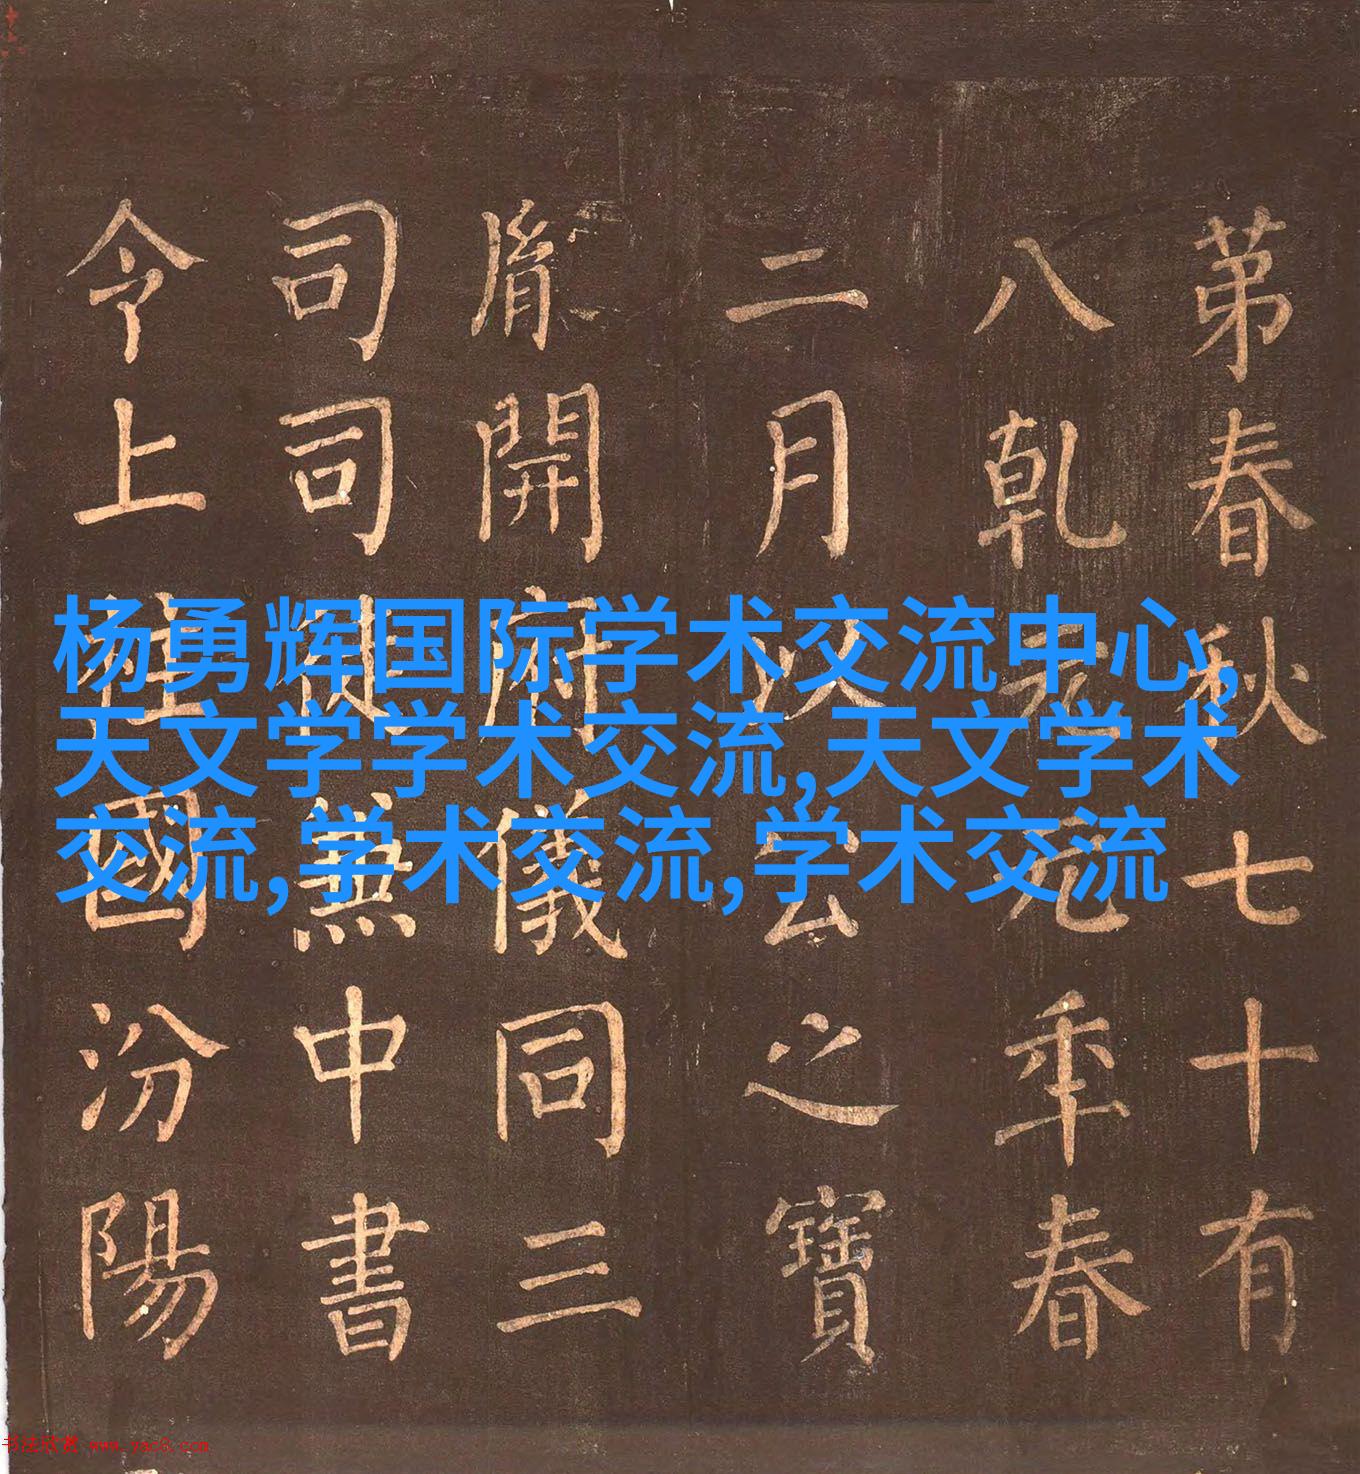 苐春秋七十有
八乾元元年春
二月以公之寶
胤開府儀同三
司司徒兼中書
令上柱國汾陽
杨勇辉国际学术交流中心,
天文学学术交流,天文学术
交流,学术交流,学术交流
书法欣赏 www.yac8.com